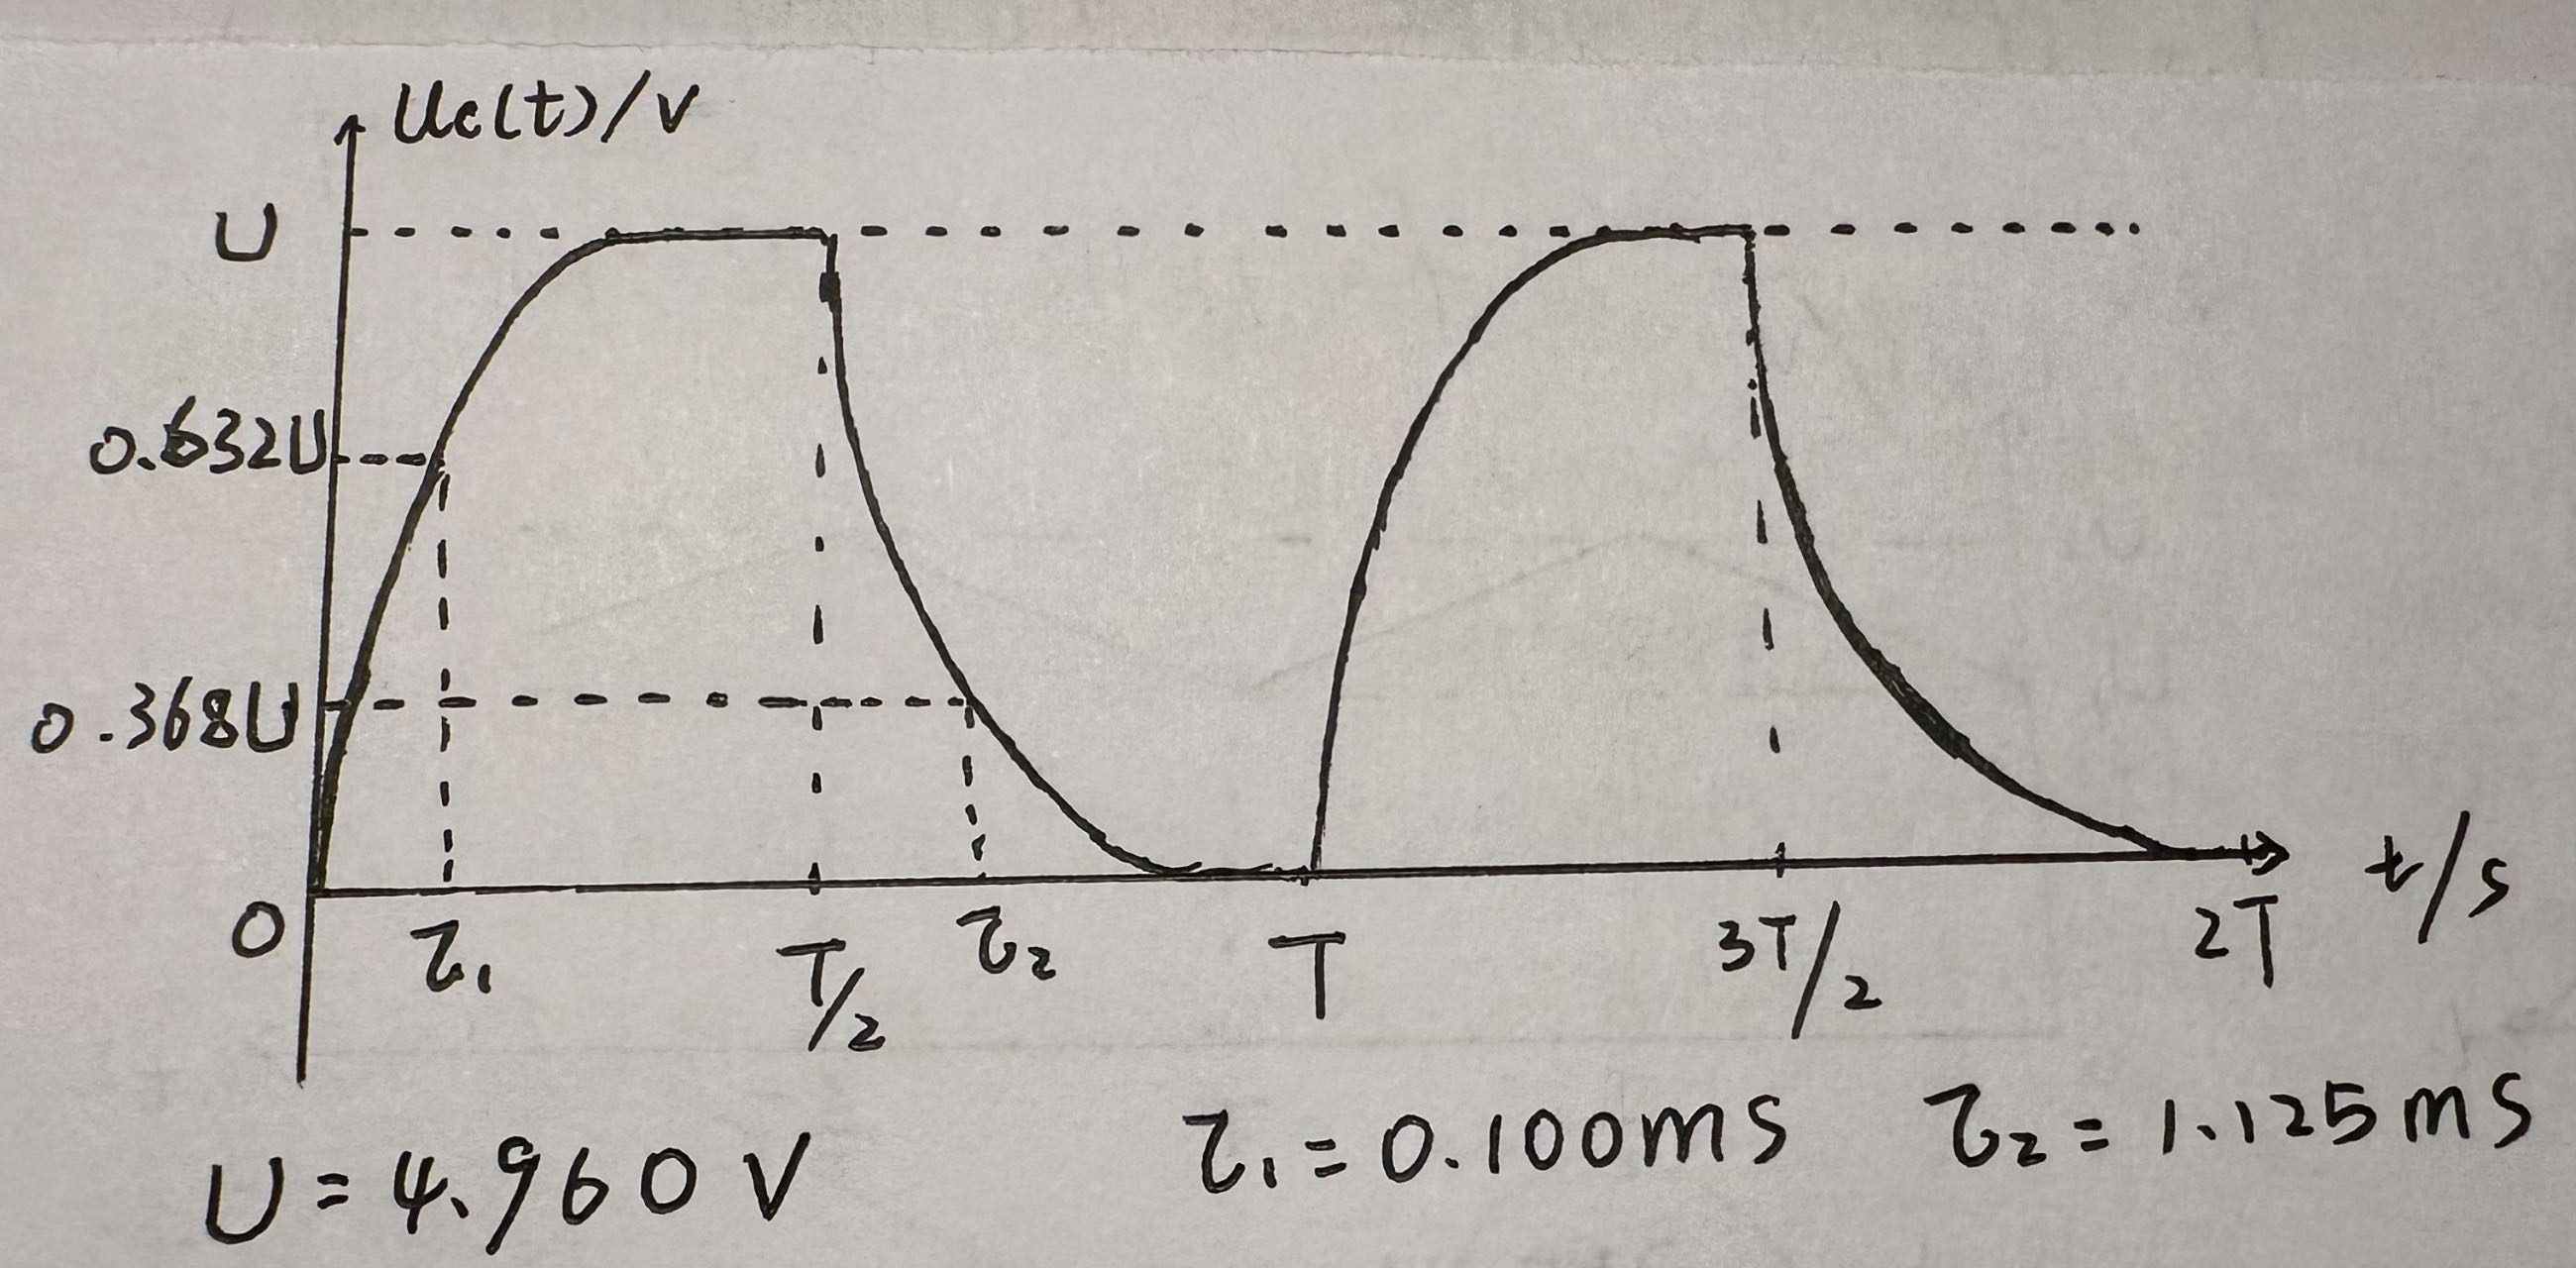 Uc(t)/V
U
0.632U
0.368U
0
τ₁
T/2
τ₂
T
3T/2
2T
t/s
U = 4.960 V
τ₁ = 0.100ms
τ₂ = 1.125ms